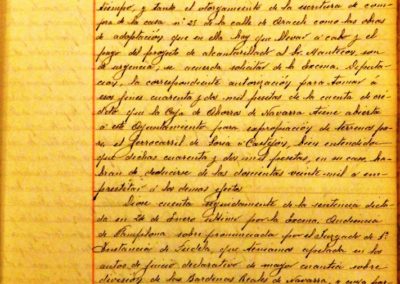 tiempo, y tanto el otorgamiento de la escritura de com-
pra de la casa nº 25 de la calle de Araceli como las obras
de adaptación que en ella hay que llevar a cabo y el
pago del proyecto de alcantarillado al Sr. son
de urgencia, se acuerda solicitar de la Excma. Diputa-
ción, la correspondiente autorización para tomar a
esos fines cuarenta y dos mil pesetas de la cuenta de cré-
dito que la Caja de Ahorros de Navarra tiene abierta
a este Ayuntamiento para expropiación de terrenos pa-
ra el ferrocarril de Soria a Castejón, bien entendido
que dichas cuarenta y dos mil pesetas, en su caso ha-
bran de deducirse de las doscientas veinte mil a em-
prestitar a los demas efectos.
Diose cuenta seguidamente de la sentencia dicta-
da en 24 de Enero último por la Excma. Audiencia
de Pamplona sobre pronunciada por el Juzgado de 1ª
Instancia de Tudela que teniamos apelada en los
autos de juicio declarativo de mayor cuantía sobre
división de las Bardenas Reales de Navarra, y cuya par-